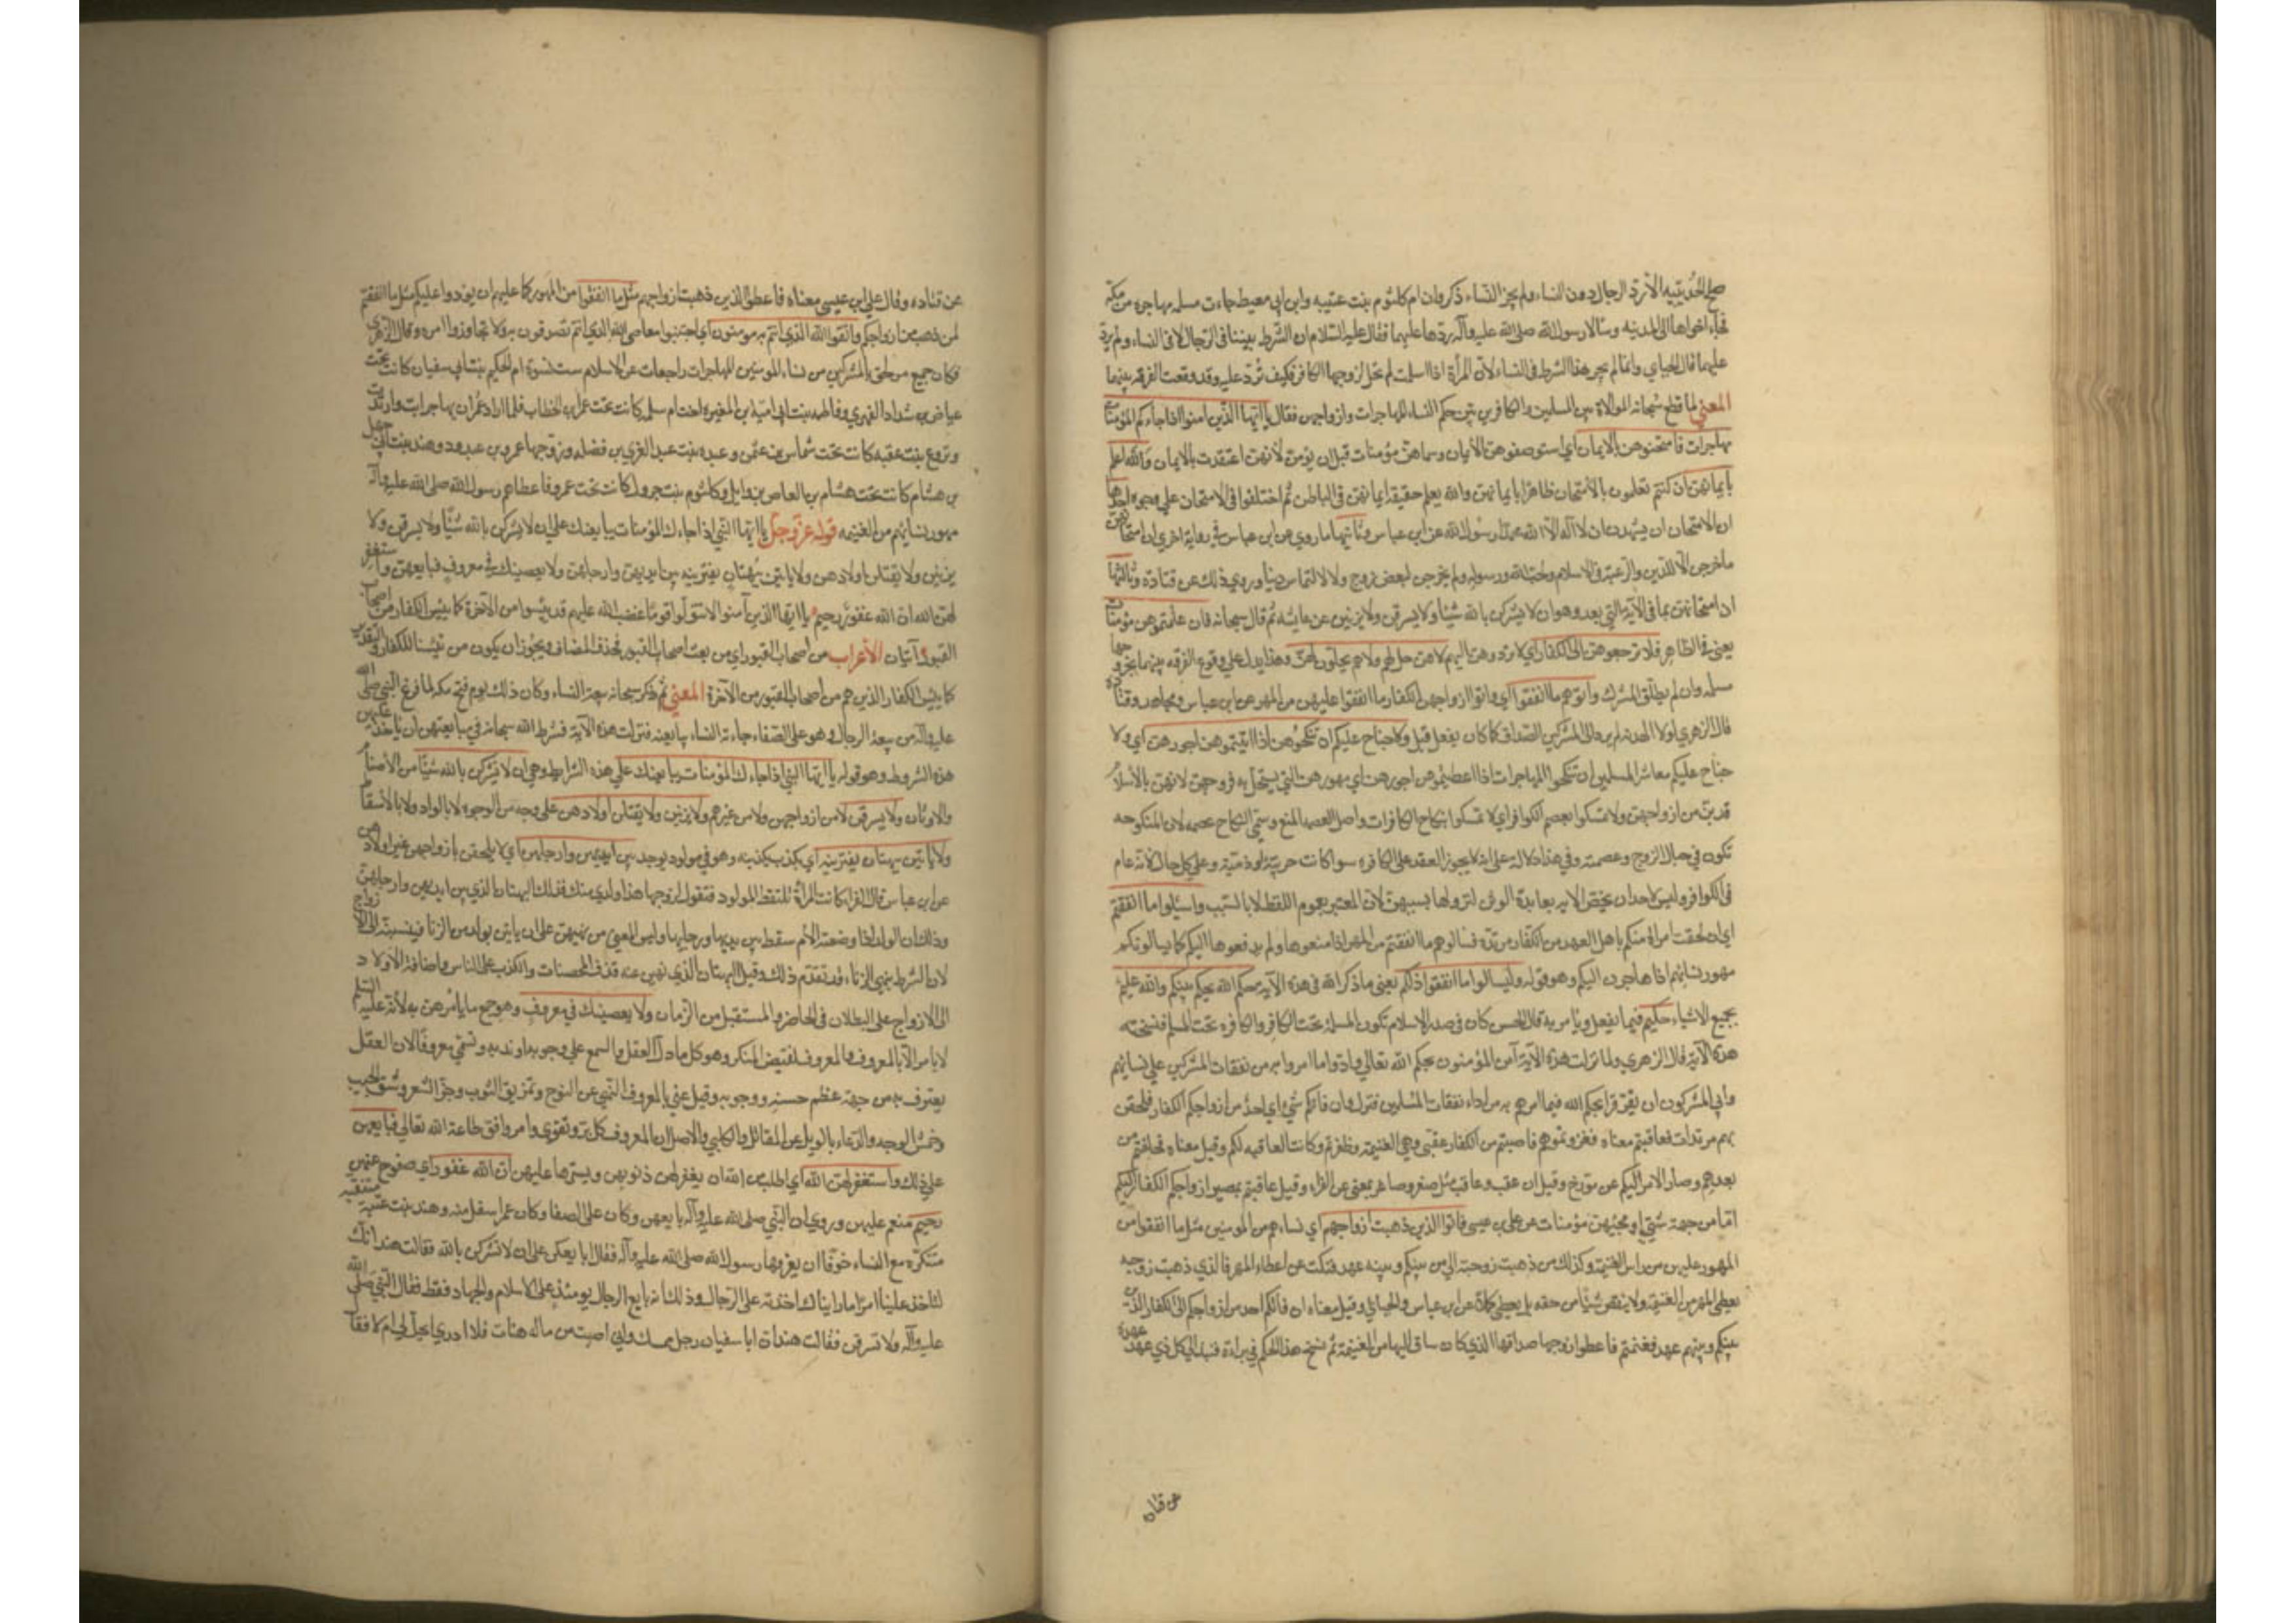 صلح الحديبيه الا برد الرجال دون النساء ولم يجز للنساء ذكر وان ام كلثوم بنت عتيبه وابن ابي معيط جاءت مسلمه مهاجره من مكة
فجاء اخواها الى المدينه وسألا رسول الله صلى الله عليه وآله ردها عليهما فقال عليه السلام ان الشرط بيننا في الرجال لا في النساء ولم يرد
عليهما قال الجبائي وانما لم يجر هذا الشرط في النساء لأن المرأة اذا اسلمت لم تحل لزوجها الكافر فكيف تُردّ عليه وقد وقعت الفرقه بينهما
المعنى لما قطع سُبحانه الموالاة بين المسلمين والكافرين بيّن حكم النساء المهاجرات وازواجهن فقال يا ايّها الذين امنوا اذا جاءكم المؤمنات
مهاجرات فامتحنوهن بالايمان اي استوصفوهنّ الأيمان وسماهنّ مؤمنات قبل ان يؤمنّ لأنهنّ اعتقدت بالايمان والله اعلم
بايمانهنّ ان كنتم تعلمون بالامتحان ظاهرًا بايمانهنّ والله يعلم حقيقة ايمانهنّ في الباطن ثم اختلفوا في الامتحان على وجوه احدها
ان الامتحان ان يشهدن ان لا اله الا الله محمدًا رسول الله عن ابن عباس وثانيها ما روي عن ابن عباس في رواية اخرى ان امتحانهن
ما خرجن الا للدين والرغبة في الاسلام ولحبّ الله ورسوله ولم يخرجن لبغض زوج ولا لالتماس دنيا وروي ذلك عن قتادة وثالثها
ان امتحانهنّ بما في الآية التي بعد وهو ان لا يشركن بالله شيئًا ولا يسرقن ولا يزنين عن عايشه ثم قال سبحانه فان علمتموهن مؤمنات
يعني في الظاهر فلا ترجعوهنّ الى الكفار اي لا تردوهنّ اليهم لا هنّ حل لهم ولا هم يحلون لهنّ وهذا يدل على وقوع الفرقه بينهما بخروجها
مسلمه وان لم يطلق المشرك وآتوهم ما انفقوا اي واتوا ازواجهن الكفار ما انفقوا عليهن من المهر عن ابن عباس ومجاهد وقتادة
قال الزهري لولا الهدنه لم يردّ الى المشركين الصداق كما كان يفعل قبل ولا جناح عليكم ان تنكحوهن اذا اتيتموهن اجورهن اي ولا
جناح عليكم معاشر المسلمين ان تنكحوا المهاجرات اذا اعطيتموهن اجورهن اي مهورهن التي يستحل به فروجهن لانهنّ بالأسلام
قد بنّ من ازواجهنّ ولا تمسكوا بعصم الكوافر اي لا تمسكوا بنكاح الكافرات واصل العصمة المنع وسمّي النكاح عصمه لان المنكوحه
تكون في حبال الزوج وعصمته وفي هذا دلالة على انه لا يجوز العقد على الكافره سوا كانت حربيّة او ذميّة وعلى كل حال لأنه عام
في الكوافر وليس لاحد ان يخصّ الآيه بعابدة الوثن لنزولها بسببهنّ لأن المعتبر بعموم اللفظ لا بالسبب واسئلوا ما انفقتم
اي ان لحقت امراة منكم باهل العهد من الكفار مرتدّه فسالوهم ما انفقتم من المهر اذا منعوها ولم يدفعوها اليكم كما يسالونكم
مهور نسائهم اذا هاجرن اليكم وهو قوله وليسالوا ما انفقوا ذلكم يعني ما ذكر الله في هذه الآيه حكم الله يحكم بينكم والله عليمٌ
بجميع الاشياء حكيم فيما يفعل ويأمر به قال الحسن كان في صدر الاسلام تكون المسلمة تحت الكافر والكافره تحت المسلم فنسخته
هذه الآية قال الزهري ولما نزلت هذه الآية آمن المؤمنون بحكم الله تعالى وادّوا ما امروا به من نفقات المشركين على نسائهم
وابى المشركون ان يقرّوا بحكم الله فيما امرهم به من اداء نفقات المسلمين فنزل وان فاتكم شيء اي احدٌ من ازواجكم الى الكفار فلحقن
بهم مرتدات فعاقبتم معناه فغزوتموهم فاصبتم من الكفار عقبى وهي الغنيمة وظفرتم وكانت العاقبه لكم وقيل معناه فخلفتم من
بعدهم وصار الامر اليكم عن مؤرّخ وقيل ان عقب وعاقب مثل صغر وصاغر بمعنى عن الفرّاء وقيل عاقبتم بمصير ازواجكم الكفار اليكم
امّا من جهة سَبي او مجيئهن مؤمنات عن علي بن عيسى فاتوا الذين ذهبت ازواجهم اي نساءهم من المومنين مثل ما انفقوا من
المهور عليهن من راس الغنيمة وكذلك من ذهبت زوجته الى من بينكم وبينه عهد فنكث عن اعطاء المهر فالذي ذهبت زوجته
يعطى المهر من الغنيمة ولا ينقص شيئًا من حقه بل يعطى كملًا عن ابن عباس والجبائي وقيل معناه ان فاتكم احد من ازواجكم الى الكفار الذين
بينكم وبينهم عهد فغنمتم فاعطوا زوجها صداقها الذي كان ساق اليها من الغنيمة ثم نسخ هذا الحكم في براءة فنبذ الى كل ذي عهد عهده
عن قتاده
عن قتاده وقال علي ابن عيسى معناه فاعطوا الذين ذهبت ازواجهم مثل ما انفقوا من المهور كما عليهم ان يؤدوا عليكم مثل ما انفقتم
لمن ذهب من ازواجكم واتقوا الله الذي انتم به مومنون اي اجتنبوا معاصي الله الذي انتم تصدقون به ولا تجاوزوا امره وقال الزهري
فكان جميع من لحق بالمشركين من نساء المومنين المهاجرات راجعات عن الاسلام ست نسوة ام الحكيم بنت ابي سفيان كانت تحت
عياض بن شداد الفهري وفاطمه بنت ابي اميّة ابن المغيره اخت ام سلمه كانت تحت عمر بن الخطاب فلما اراد عمر ان يهاجر ابت وارتدت
وبروع بنت عقبه كانت تحت شماس بن عثمن وعبده بنت عبد العزي بن فضله وزوجها عمرو بن عبدود وهند بنت ابي جهل
بن هشام كانت تحت هشام بن العاص بن وايل وكلثوم بنت جرول كانت تحت عمر فاعطاهم رسول الله صلى الله عليه وآله
مهور نسائهم من الغنيمه قوله عزّ وجلّ يا ايّها النبي اذا جاءك المؤمنات يبايعنك على ان لا يشركن بالله شيئًا ولا يسرقن ولا
يزنين ولا يقتلن اولادهن ولا ياتين ببُهتانٍ يفترينه بين ايديهن وارجلهن ولا يعصينك في معروفٍ فبايعهن واستغفر
لهنّ الله ان الله غفورٌ رحيم يا ايها الذين آمنوا لا تتولّوا قومًا غضب الله عليهم قد يئسوا من الآخرة كما يئس الكفار من اصحاب
القبور آيتان الأعراب من اصحاب القبور اي من بعث اصحاب القبور فحذف المضاف ويجوز ان يكون من تبيينًا للكفار والتقدير
كما يئس الكفار الذين هم من اصحاب القبور من الآخرة المعنى ثم ذكر سبحانه بيعة النساء وكان ذلك يوم فتح مكه لما فرغ النبي صلى الله
عليه وآله من بيعة الرجال وهو على الصفا جاءته النساء يبايعنه فنزلت هذه الآية فشرط الله سبحانه في مبايعتهن ان ياخذ عليهن
هذه الشروط وهو قوله يا ايّها النبي اذا جاءك المؤمنات يبايعنك على هذه الشرايط وهي ان لا يشركن بالله شيئًا من الأصنام
والاوثان ولا يسرقن لا من ازواجهن ولا من غيرهم ولا يزنين ولا يقتلن اولادهن على وجه من الوجوه لا بالواد ولا بالأسقاط
ولا ياتين ببهتان يفترينه اي بكذب يكذبنه وهو في مولود يوجد بين ايديهن وارجلهن اي لا يلحقن بازواجهن غير اولادهن
عن ابن عباس قال الفرا كانت المرأة تلتقط المولود فتقول لزوجها هذا ولدي منك فذلك البهتان الذي بين ايديهن وارجلهن
وذلك ان الولد اذا وضعته الأم سقط بين يديها ورجليها وليس المعنى من نهيهن على ان ياتين بولد من الزنا فينسبنه الى الازواج
لان الشرط بنهي الزناء قد تقدّم ذلك وقيل البهتان الذي نهين عنه قذف المحصنات والكذب على الناس واضافة الاولاد
الى الازواج على البطلان في الحاضر والمستقبل من الزمان ولا يعصينك في معروفٍ وهو جميع ما يامرهن به لأنه عليه السلم
لا يامر الا بالمعروف والمعروف نقيض المنكر وهو كل ما دل العقل والسمع على وجوبه او ندبه وتسمّى معروفًا لان العقل
يعترف به من جهة عظم حسنه ووجوبه وقيل عني بالمعروف النهي عن النوح وتمزيق الثوب وجزّ الشعر وشق الجيب
وخمش الوجه والدّعاء بالويل عن المقاتل والكلبي والاصل ان المعروف كل برّ وتقوى وامر وافق طاعة الله تعالى فبايعهن
على ذلك واستغفر لهنّ الله اي اطلب من الله ان يغفر لهن ذنوبهن ويسترها عليهن ان الله غفور اي صفوح عنهن
رحيم منعم عليهن وروي ان النبي صلى الله عليه وآله بايعهن وكان على الصفا وكان عمر اسفل منه وهند بنت عتبة متنقبه
متنكره مع النساء خوفًا ان يعرفها رسول الله صلى الله عليه وآله فقال ابايعكن على ان لا تشركن بالله فقالت هند انك
لتاخذ علينا امرًا ما رايناك اخذته على الرجال وذلك انه بايع الرجال يومئذٍ على الاسلام والجهاد فقط فقال النبي صلى الله
عليه وآله ولا تسرقن فقالت هند ان ابا سفيان رجل ممسك واني اصبت من ماله هنات فلا ادري ايحل لي ام لا فقال